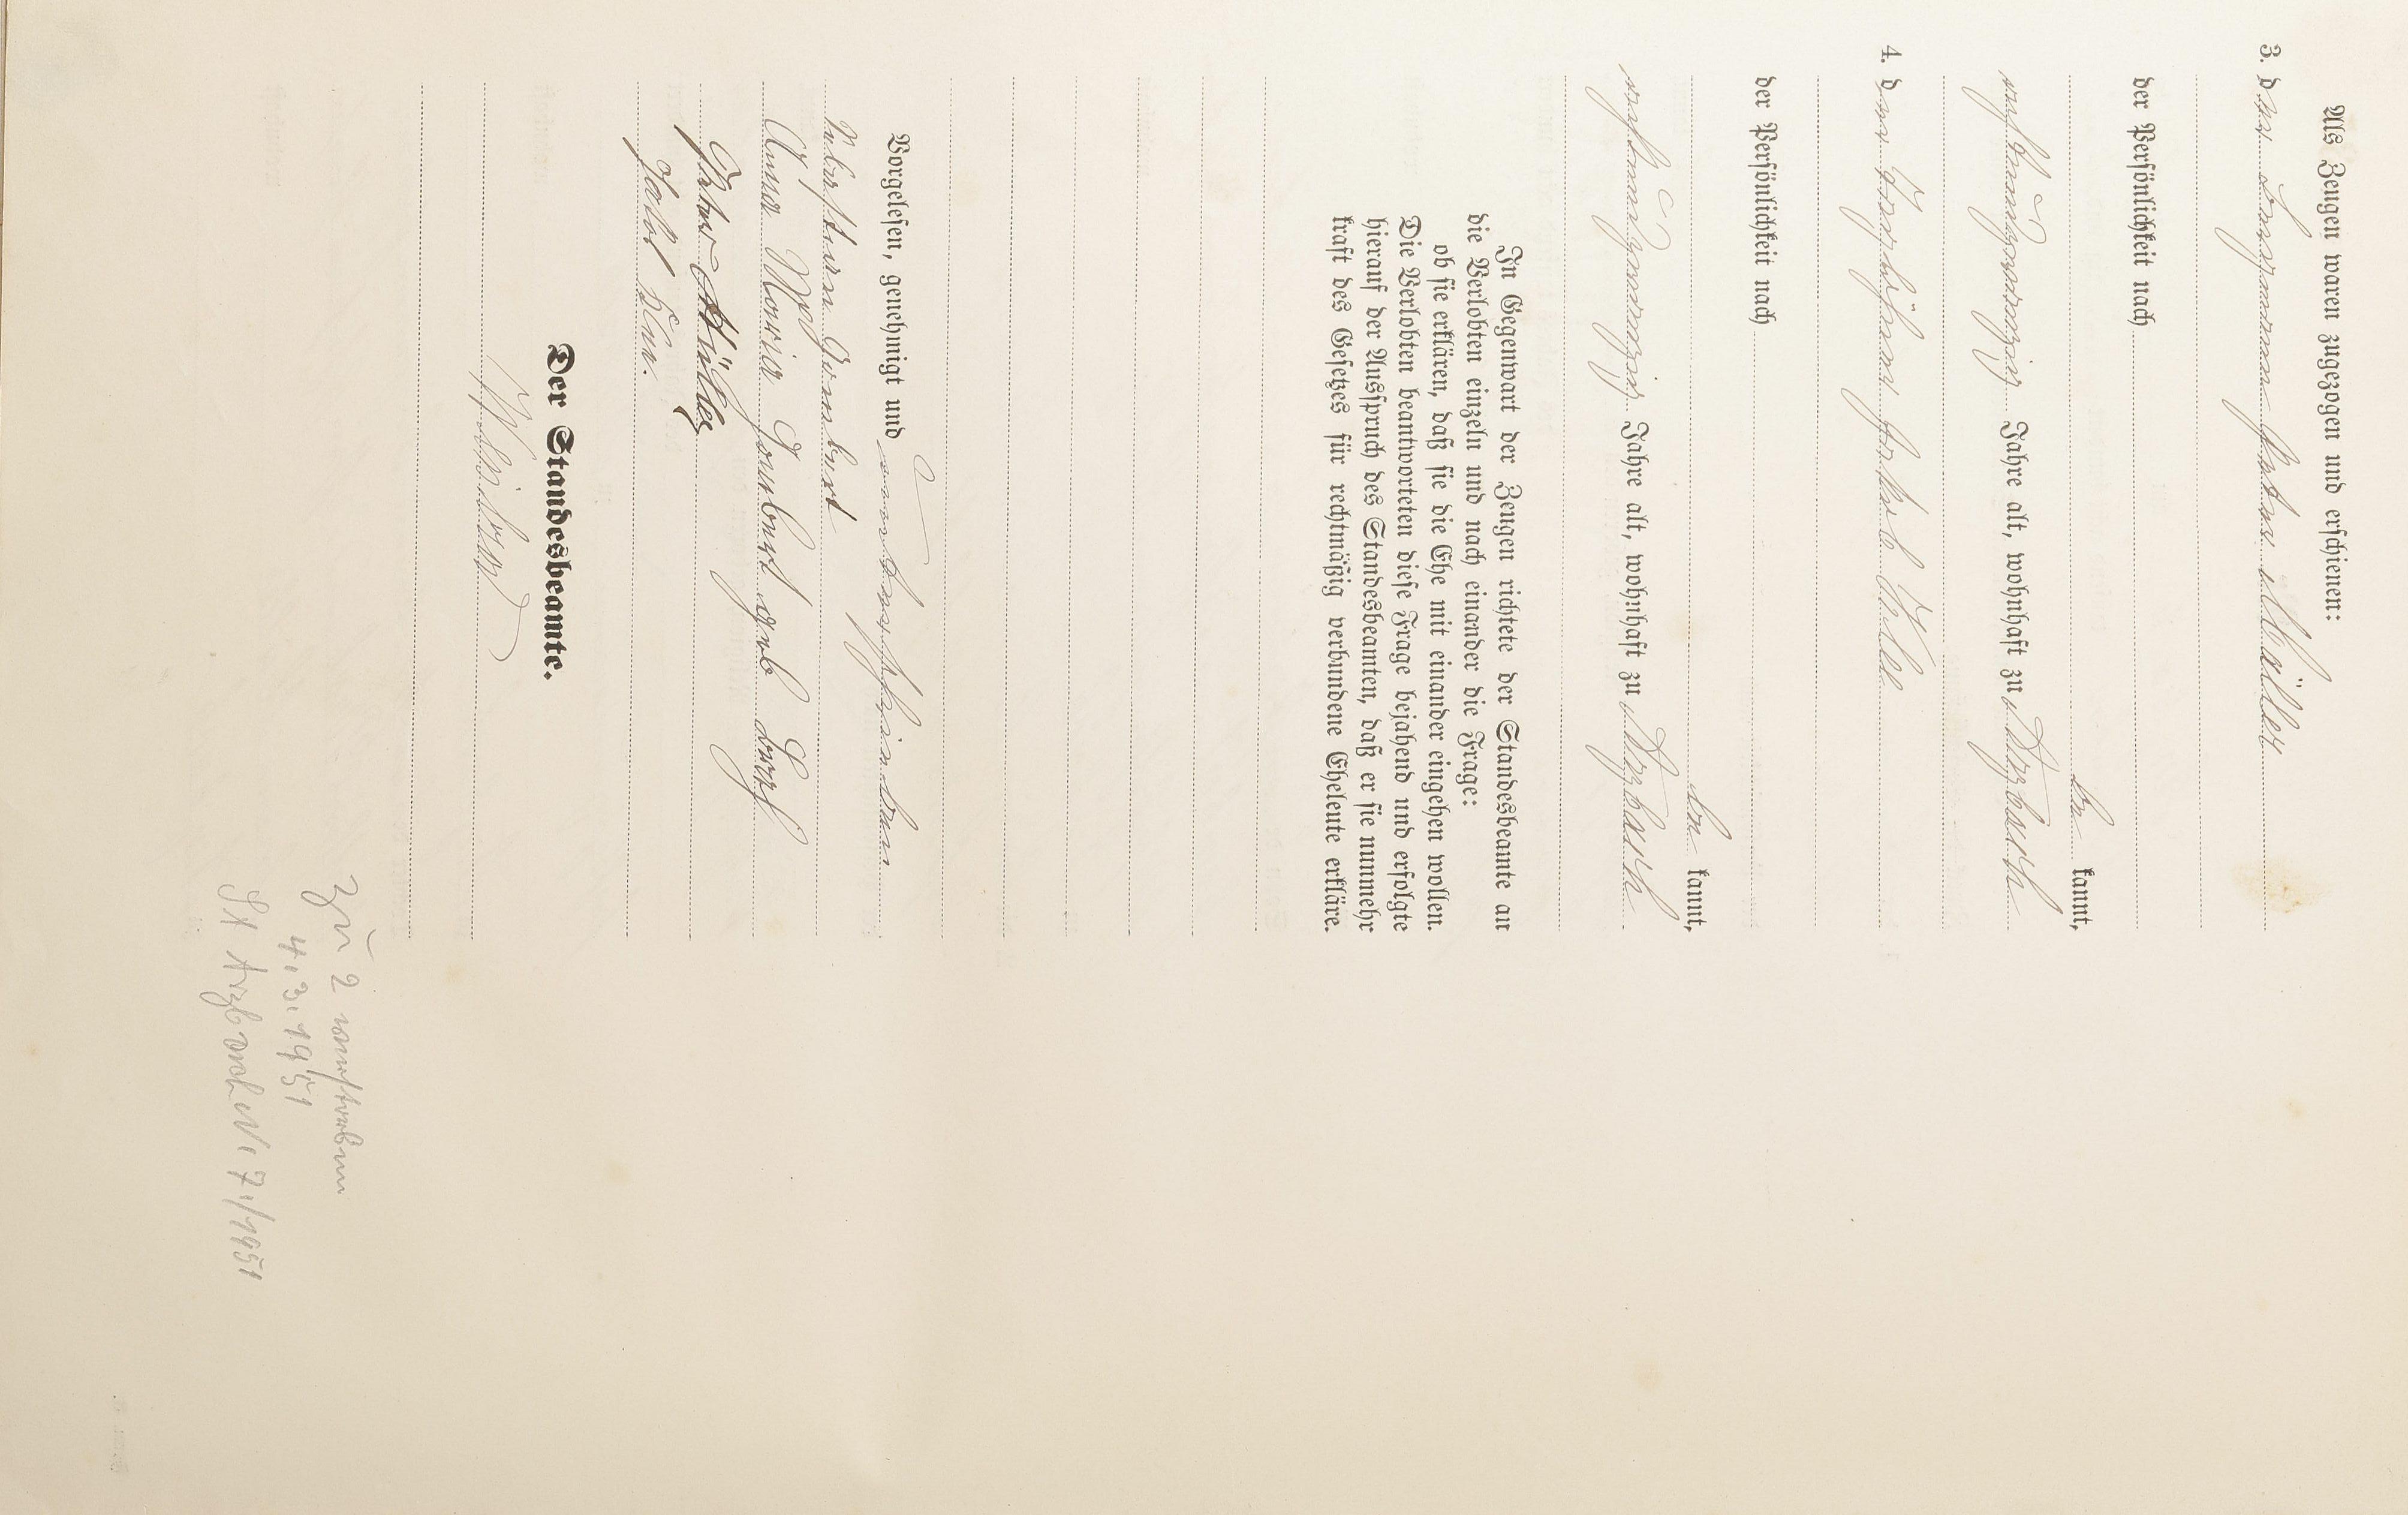 Als Zeugen waren zugezogen und erschienen:
3. der Bergmann Peter Müller
der Persönlichkeit nach
be kannt,
achtundzwanzig Jahre alt, wohnhaft zu Arzbach
4. der Tagelöhner Jakob
der Persönlichkeit nach
be kannt,
Jahre alt, wohnhaft zu Arzbach
In Gegenwart der Zeugen richtete der Standesbeamte an
die Verlobten einzeln und nach einander die Frage:
ob sie erklären, daß sie die Ehe mit einander eingehen wollen.
Die Verlobten beantworteten diese Frage bejahend und erfolgte
hierauf der Ausspruch des Standesbeamten, daß er sie nunmehr
kraft des Gesetzes für rechtmäßig verbundene Eheleute erkläre.
Vorgelesen, genehmigt und unterschrieben
Gombert
Anna Maria Gombert geb
Peter Müller
Jakob
Der Standesbeamte.
Zu 2 verstorben
4.3.1951
St Arzbach Nr 7/1951